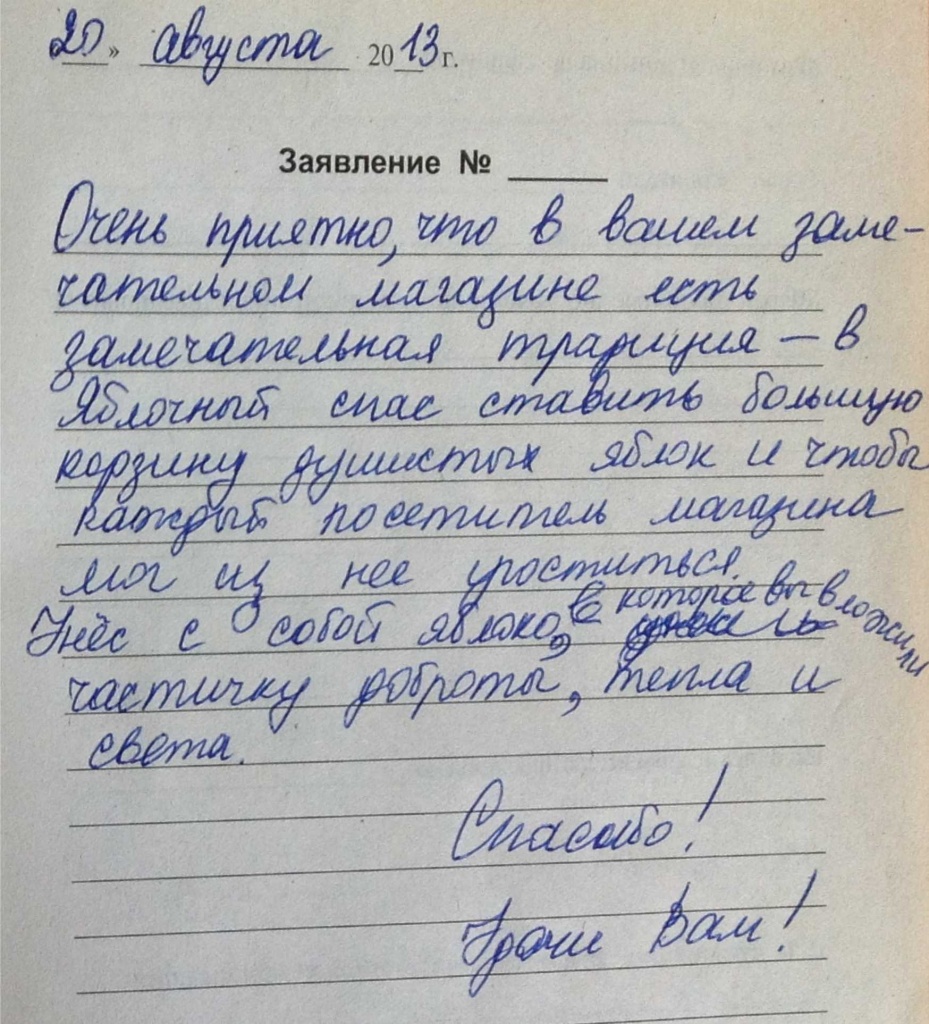 20» августа 2013г.
Заявление №
Очень приятно, что в вашем заме-
чательном магазине есть
замечательная традиция – в
Яблочный спас ставить большую
корзину душистых яблок и чтобы
каждый посетитель магазина
мог из нее угоститься.
Унёс с собой яблоко, в которое вы вложили
частичку доброты, тепла и
света.
Спасибо!
Удачи Вам!